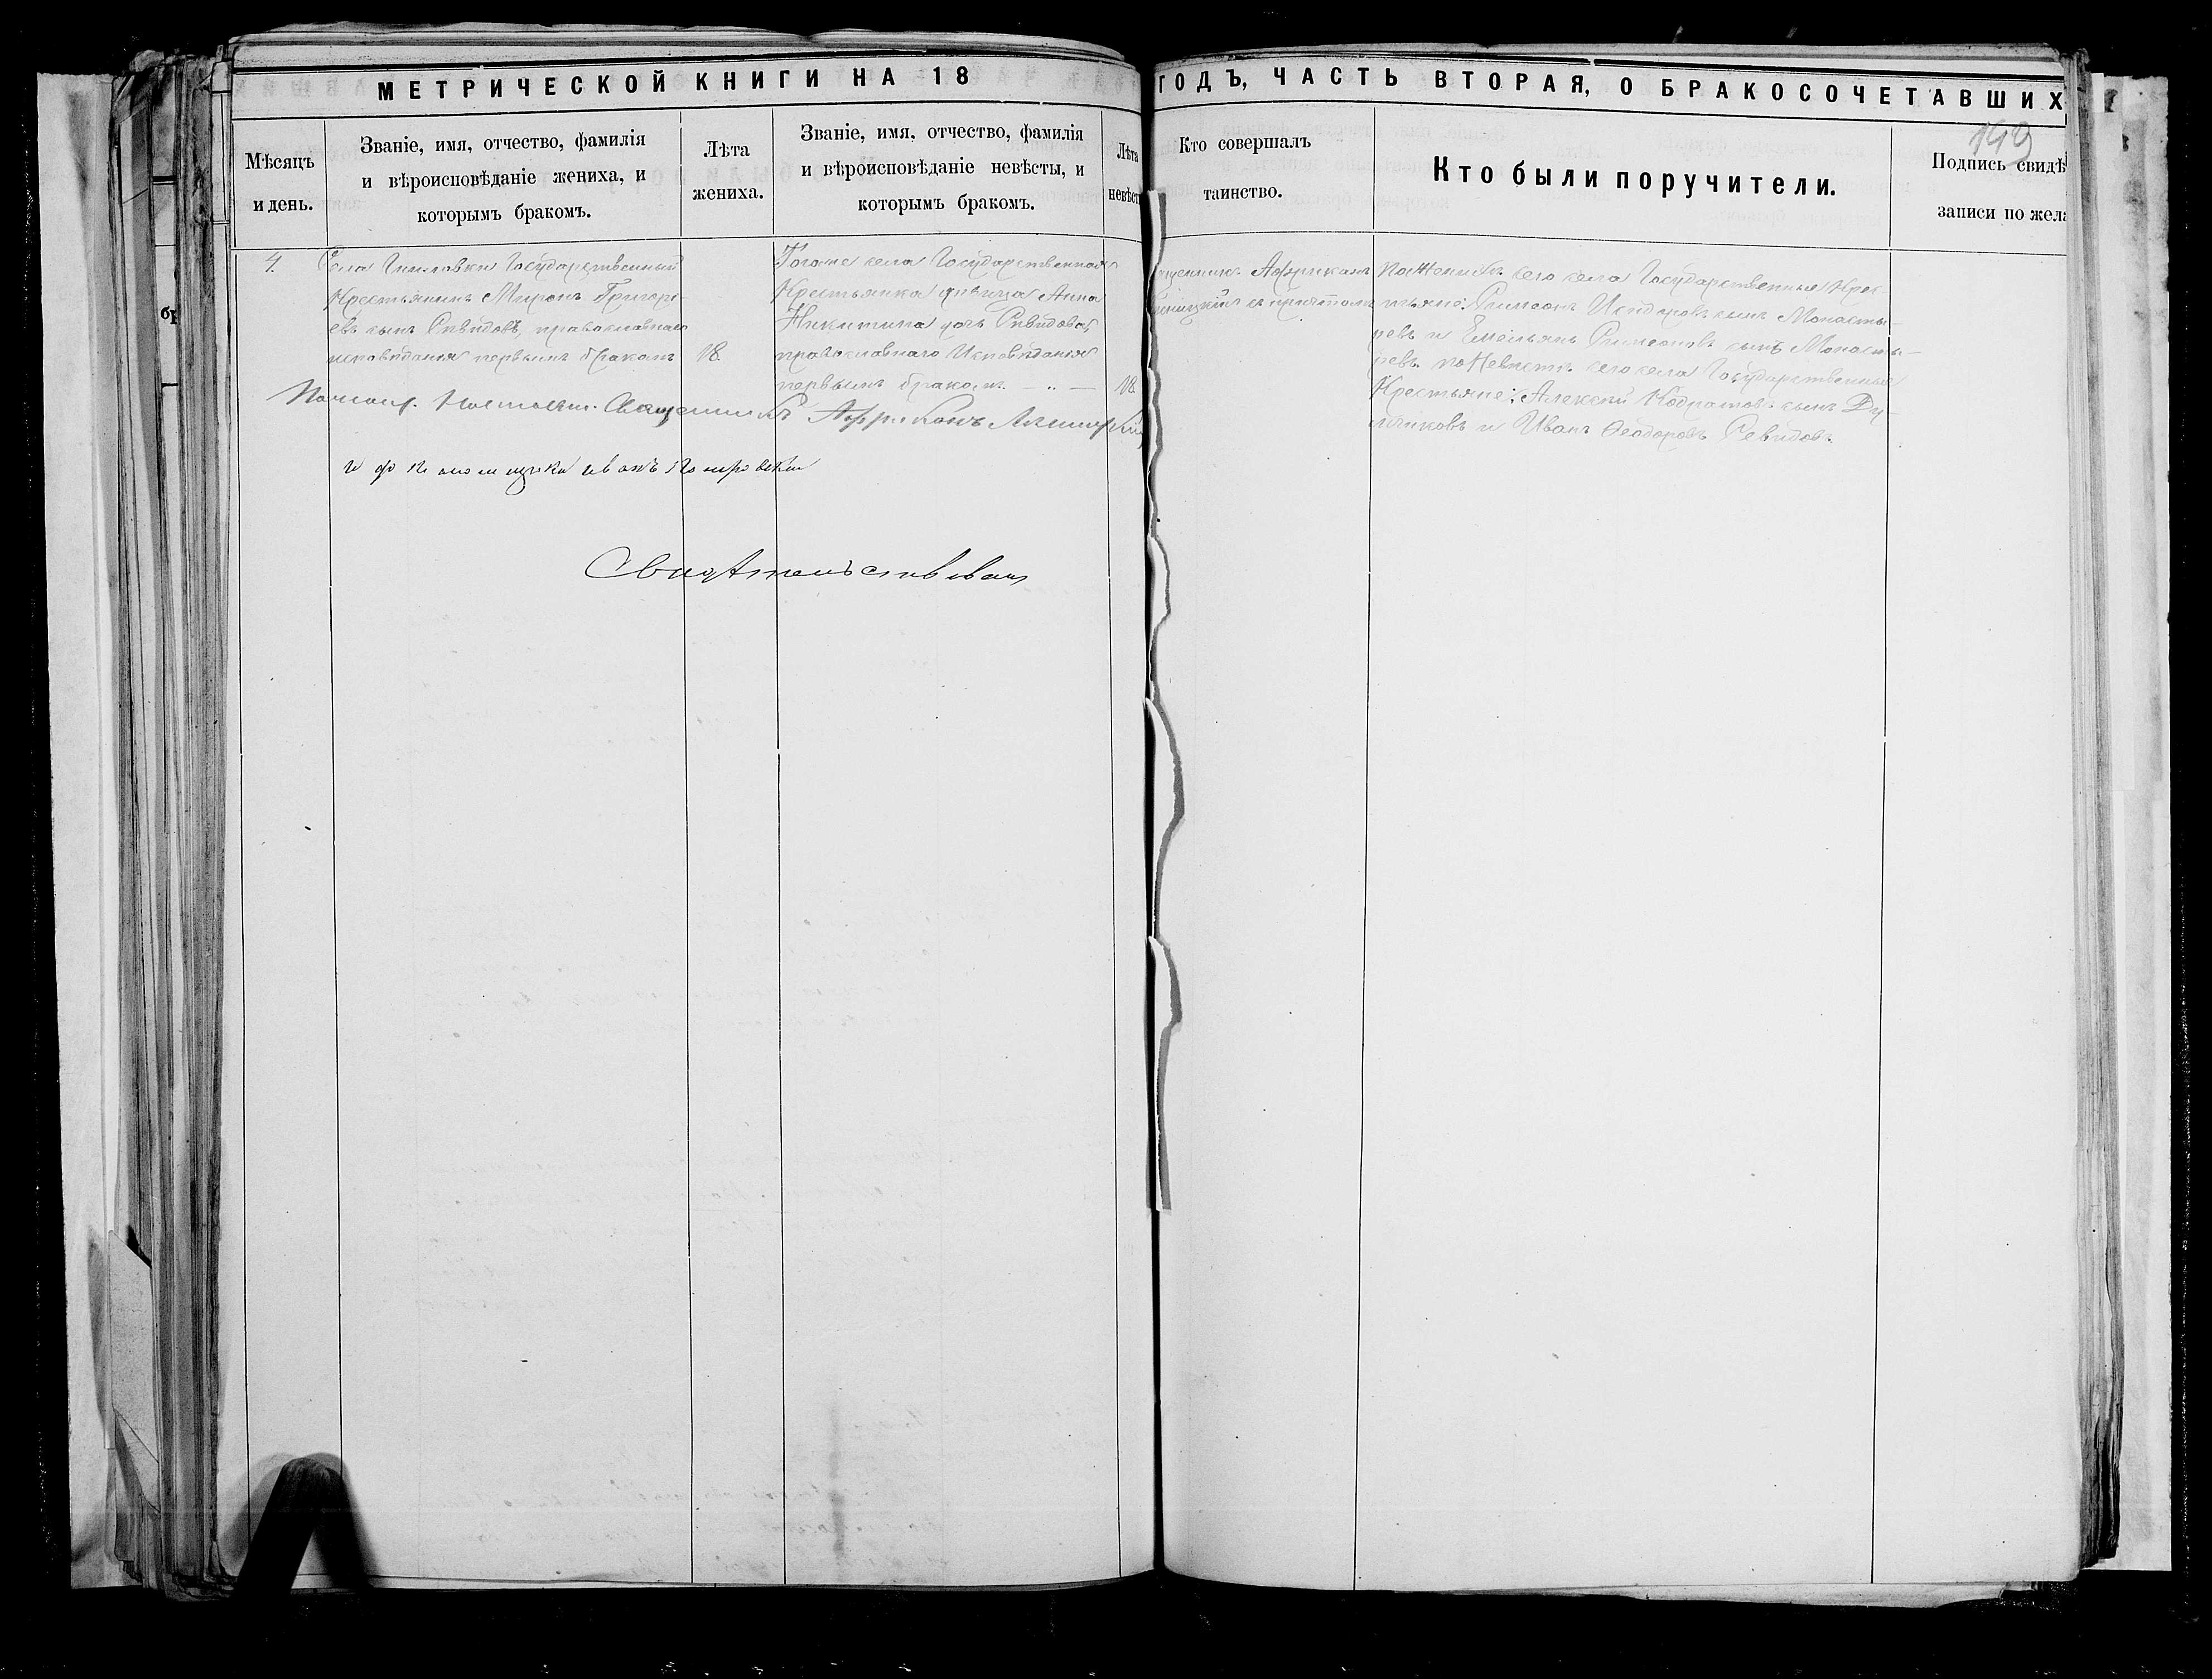 МЕТРИЧЕСКОЙ КНИГИ НА 18
ГОДЪ, ЧАСТЬ ВТОРАЯ, О БРАКОСОЧЕТАВШИХ
149
Мѣсяцъ
и день.
Званіе, имя, отчество, фамилія
и вѣроисповѣданіе жениха, и
которымъ бракомъ.
Лѣта
жениха.
Званіе, имя, отчество, фамилія
и вѣроисповѣданіе невѣсты, и
которымъ бракомъ.
Лѣта
невѣст
Кто совершалъ
таинство.
Кто были поручители.
Подпись свидѣ
записи по жела
4.
Села Государственный
Крестьянинъ Миронъ Григорь-
евъ сынъ православнаго
исповѣданія первымъ бракомъ
18.
Тогоже села Государственная
Крестьянка дѣвица Анна
Никитина дочь
православнаго Исповѣданія
первымъ бракомъ. — „ —
18.
щенникъ Африканъ
съ причтомъ
По Женихѣ сего села Государственные Крес-
тьяне: Симеонъ Исидоровъ сынъ Монасты-
ревъ и Емельянъ Симеоновъ сынъ Монасты-
ревъ. по Невѣстѣ сего села Государственные
Крестьяне: Алексѣй Кодратовъ сынъ
и Иванъ Ѳеодоровъ
Священникъ Африканъ
иванъ
Свидѣтельствовалъ